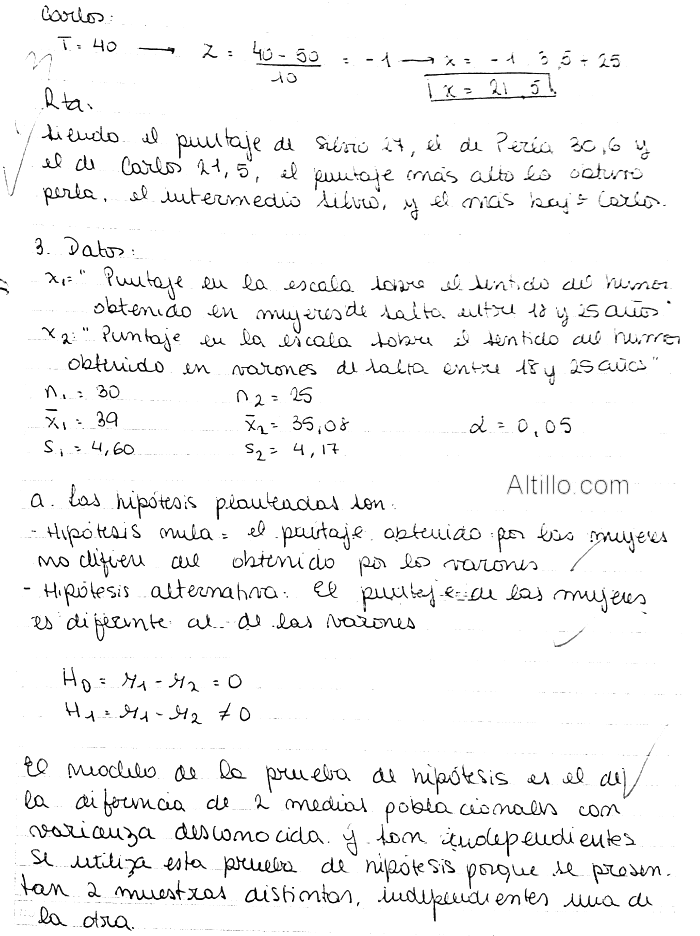 Carlos:
T = 40 → Z = 40 - 50 / 10 = -1 → x = -1 3,5 + 25
x = 21,5
Rta.
Siendo el puntaje de Silvio 27, el de Perla 30,6 y
el de Carlos 21,5, el puntaje más alto lo obtuvo
perla, el intermedio Silvio, y el más bajo Carlos.
3. Datos:
x₁="Puntaje en la escala sobre el sentido del humor
obtenido en mujeres de salta entre 18 y 25 años"
x₂:"Puntaje en la escala sobre el sentido del humor
obtenido en varones de salta entre 18 y 25 años"
n₁ = 30 n₂ = 25
x̄₁ = 39 x̄₂ = 35,08 α = 0,05
S₁ = 4,60 S₂ = 4,17
Altillo.com
a. Las hipótesis planteadas son:
- Hipótesis nula = el puntaje obtenido por las mujeres
no difiere del obtenido por los varones
- Hipótesis alternativa: El puntaje de las mujeres
es diferente al de los varones
H₀ = μ₁ - μ₂ = 0
H₁ = μ₁ - μ₂ ≠ 0
El modelo de la prueba de hipótesis es el de
la diferencia de 2 medias poblacionales con
varianza desconocida y son independientes
Se utiliza esta prueba de hipótesis porque se presen-
tan 2 muestras distintas, independientes una de
la otra.